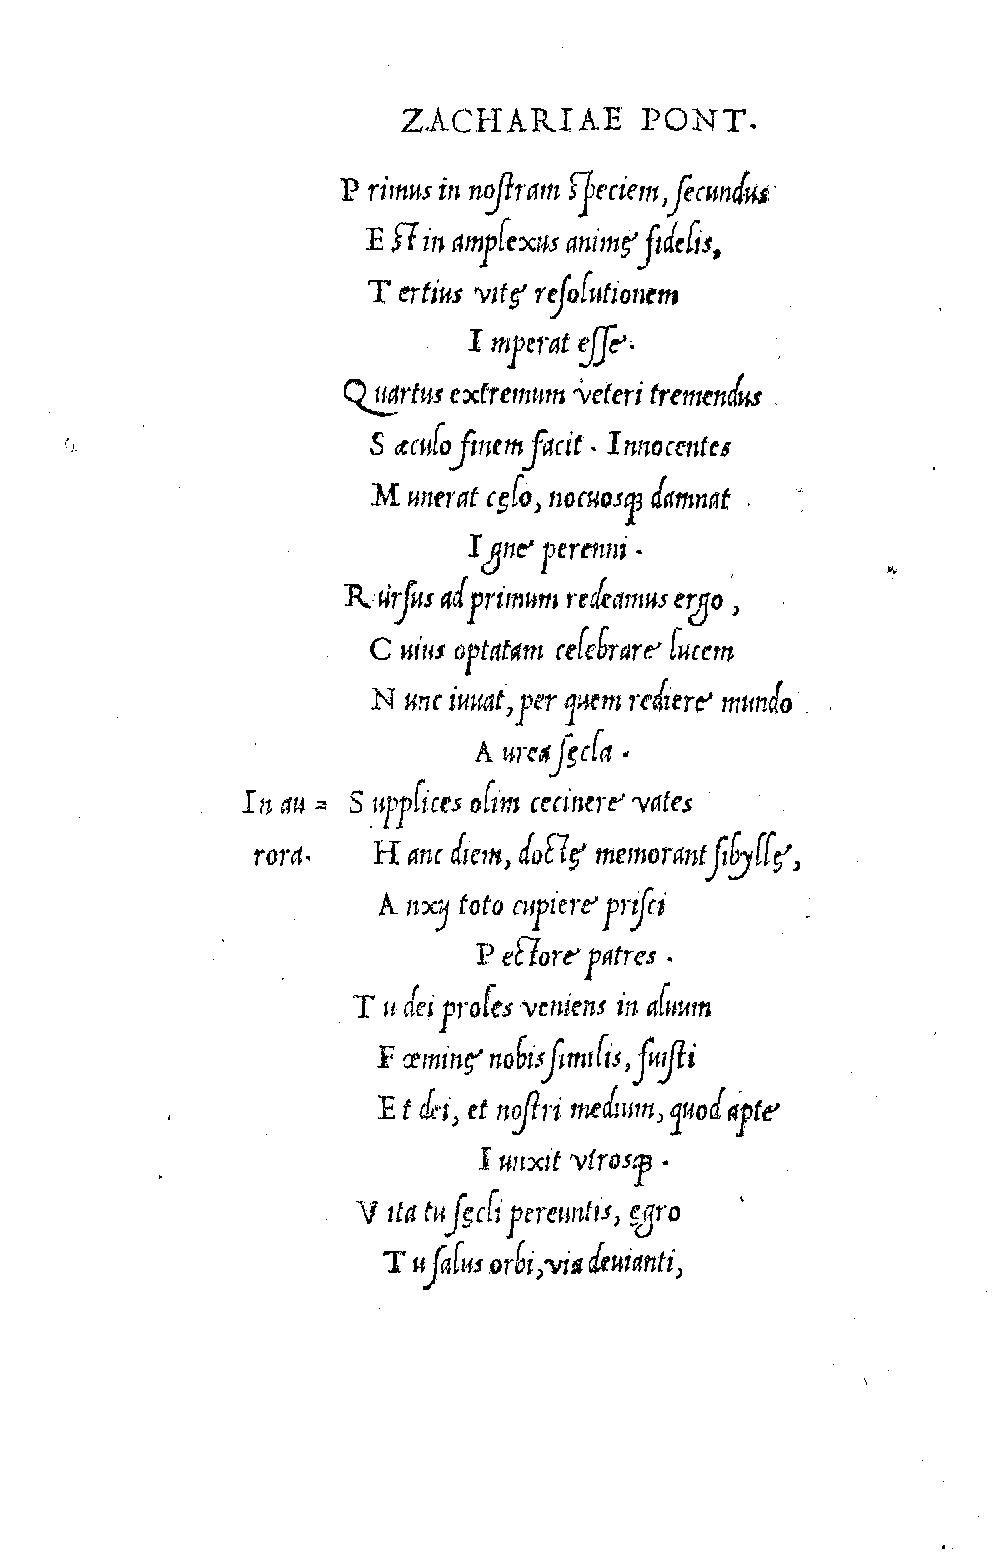 ZACHARIAE PONT.
Primus in nostram speciem, secundus
Est in amplexus animę fidelis,
Tertius vitę resolutionem
Imperat esse.
Quartus extremum veteri tremendus
Sæculo finem facit. Innocentes
Munerat cęlo, nocuosq; damnat
Igne perenni.
Rursus ad primum redeamus ergo,
Cuius optatam celebrare lucem
Nunc iuuat, per quem rediere mundo
Aurea sęcla.
In au= Supplices olim cecinere vates
rora. Hanc diem, doctę memorant sibyllę,
Anxij toto cupiere prisci
Pectore patres.
Tu dei proles veniens in aluum
Fœminę nobis similis, fuisti
Et dei, et nostri medium, quod apte
Iunxit vtrosq;.
Vita tu sęcli pereuntis, ęgro
Tu salus orbi, via deuianti,